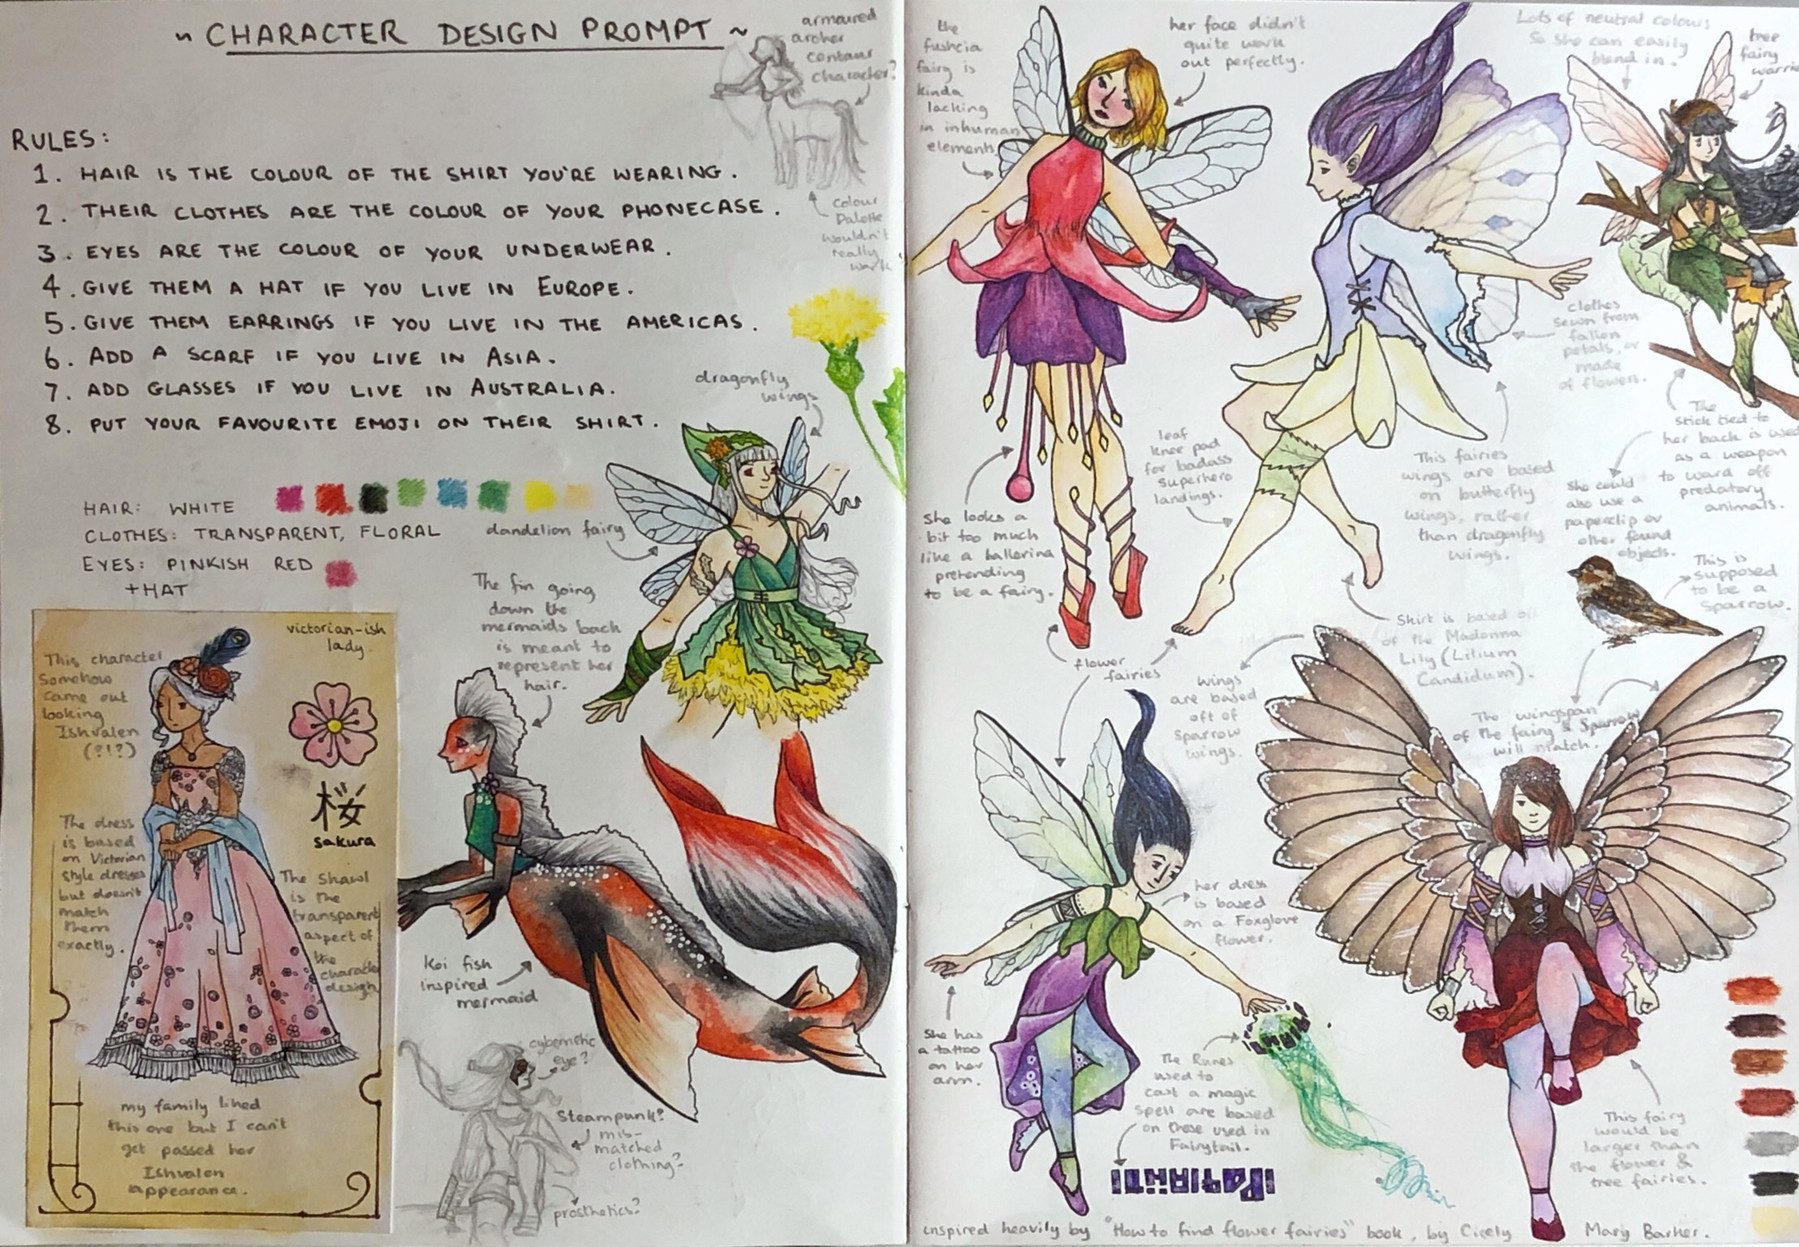 ~ CHARACTER DESIGN PROMPT ~
RULES:
1. HAIR IS THE COLOUR OF THE SHIRT YOU'RE WEARING.
2. THEIR CLOTHES ARE THE COLOUR OF YOUR PHONECASE.
3. EYES ARE THE COLOUR OF YOUR UNDERWEAR.
4. GIVE THEM A HAT IF YOU LIVE IN EUROPE.
5. GIVE THEM EARRINGS IF YOU LIVE IN THE AMERICAS.
6. ADD A SCARF IF YOU LIVE IN ASIA.
7. ADD GLASSES IF YOU LIVE IN AUSTRALIA.
8. PUT YOUR FAVOURITE EMOJI ON THEIR SHIRT.
armoured
archer
centaur
character?
colour
Palette
wouldn't
really
work
HAIR: WHITE
CLOTHES: TRANSPARENT, FLORAL
EYES: PINKISH RED
+HAT
dragonfly
wings
dandelion fairy
The fin going
down the
mermaids back
is meant to
represent her
hair.
victorian-ish
lady.
This character
Somehow
came out
looking
Ishvalen
(?!?)
桜
sakura
The dress
is based
on Victorian
style dresses
but doesn't
match
them
exactly.
The shawl
is the
transparent
aspect of
the
character
design
my family liked
this one but I can't
get passed her
Ishvalen
appearance.
Koi fish
inspired
mermaid
cybernetic
eye?
Steampunk?
mis-
matched
clothing?
prosthetics?
the
fushcia
fairy is
kinda
lacking
in inhuman
elements
her face didn't
quite work
out perfectly.
Lots of neutral colours
So she can easily
blend in.
tree
fairy
warrior
clothes
sewn from
fallen
petals, or
made
of flowers.
She looks a
bit too much
like a ballerina
pretending
to be a fairy.
leaf
knee pad
for badass
Superhero
landings.
This fairies
wings are based
on butterfly
wings, rather
than dragonfly
wings.
The
stick tied to
her back is used
as a weapon
to ward off
predatory
animals.
She could
also use a
paperclip or
other found
objects.
This is
supposed
to be a
Sparrow.
flower
fairies
Shirt is based off
of the Madonna
Lily (Lilium
Candidum).
wings
are based
oft of
Sparrow
wings.
The wingspan
of the fairy & Sparrow
will match.
her dress
is based
on a Foxglove
flower.
She has
a tattoo
on her
arm.
The Runes
used to
cast a magic
Spell are based
on those used in
Fairytail.
This fairy
would be
larger than
the flower &
tree fairies.
inspired heavily by "How to find flower fairies" book, by Cicely Mary Barker.